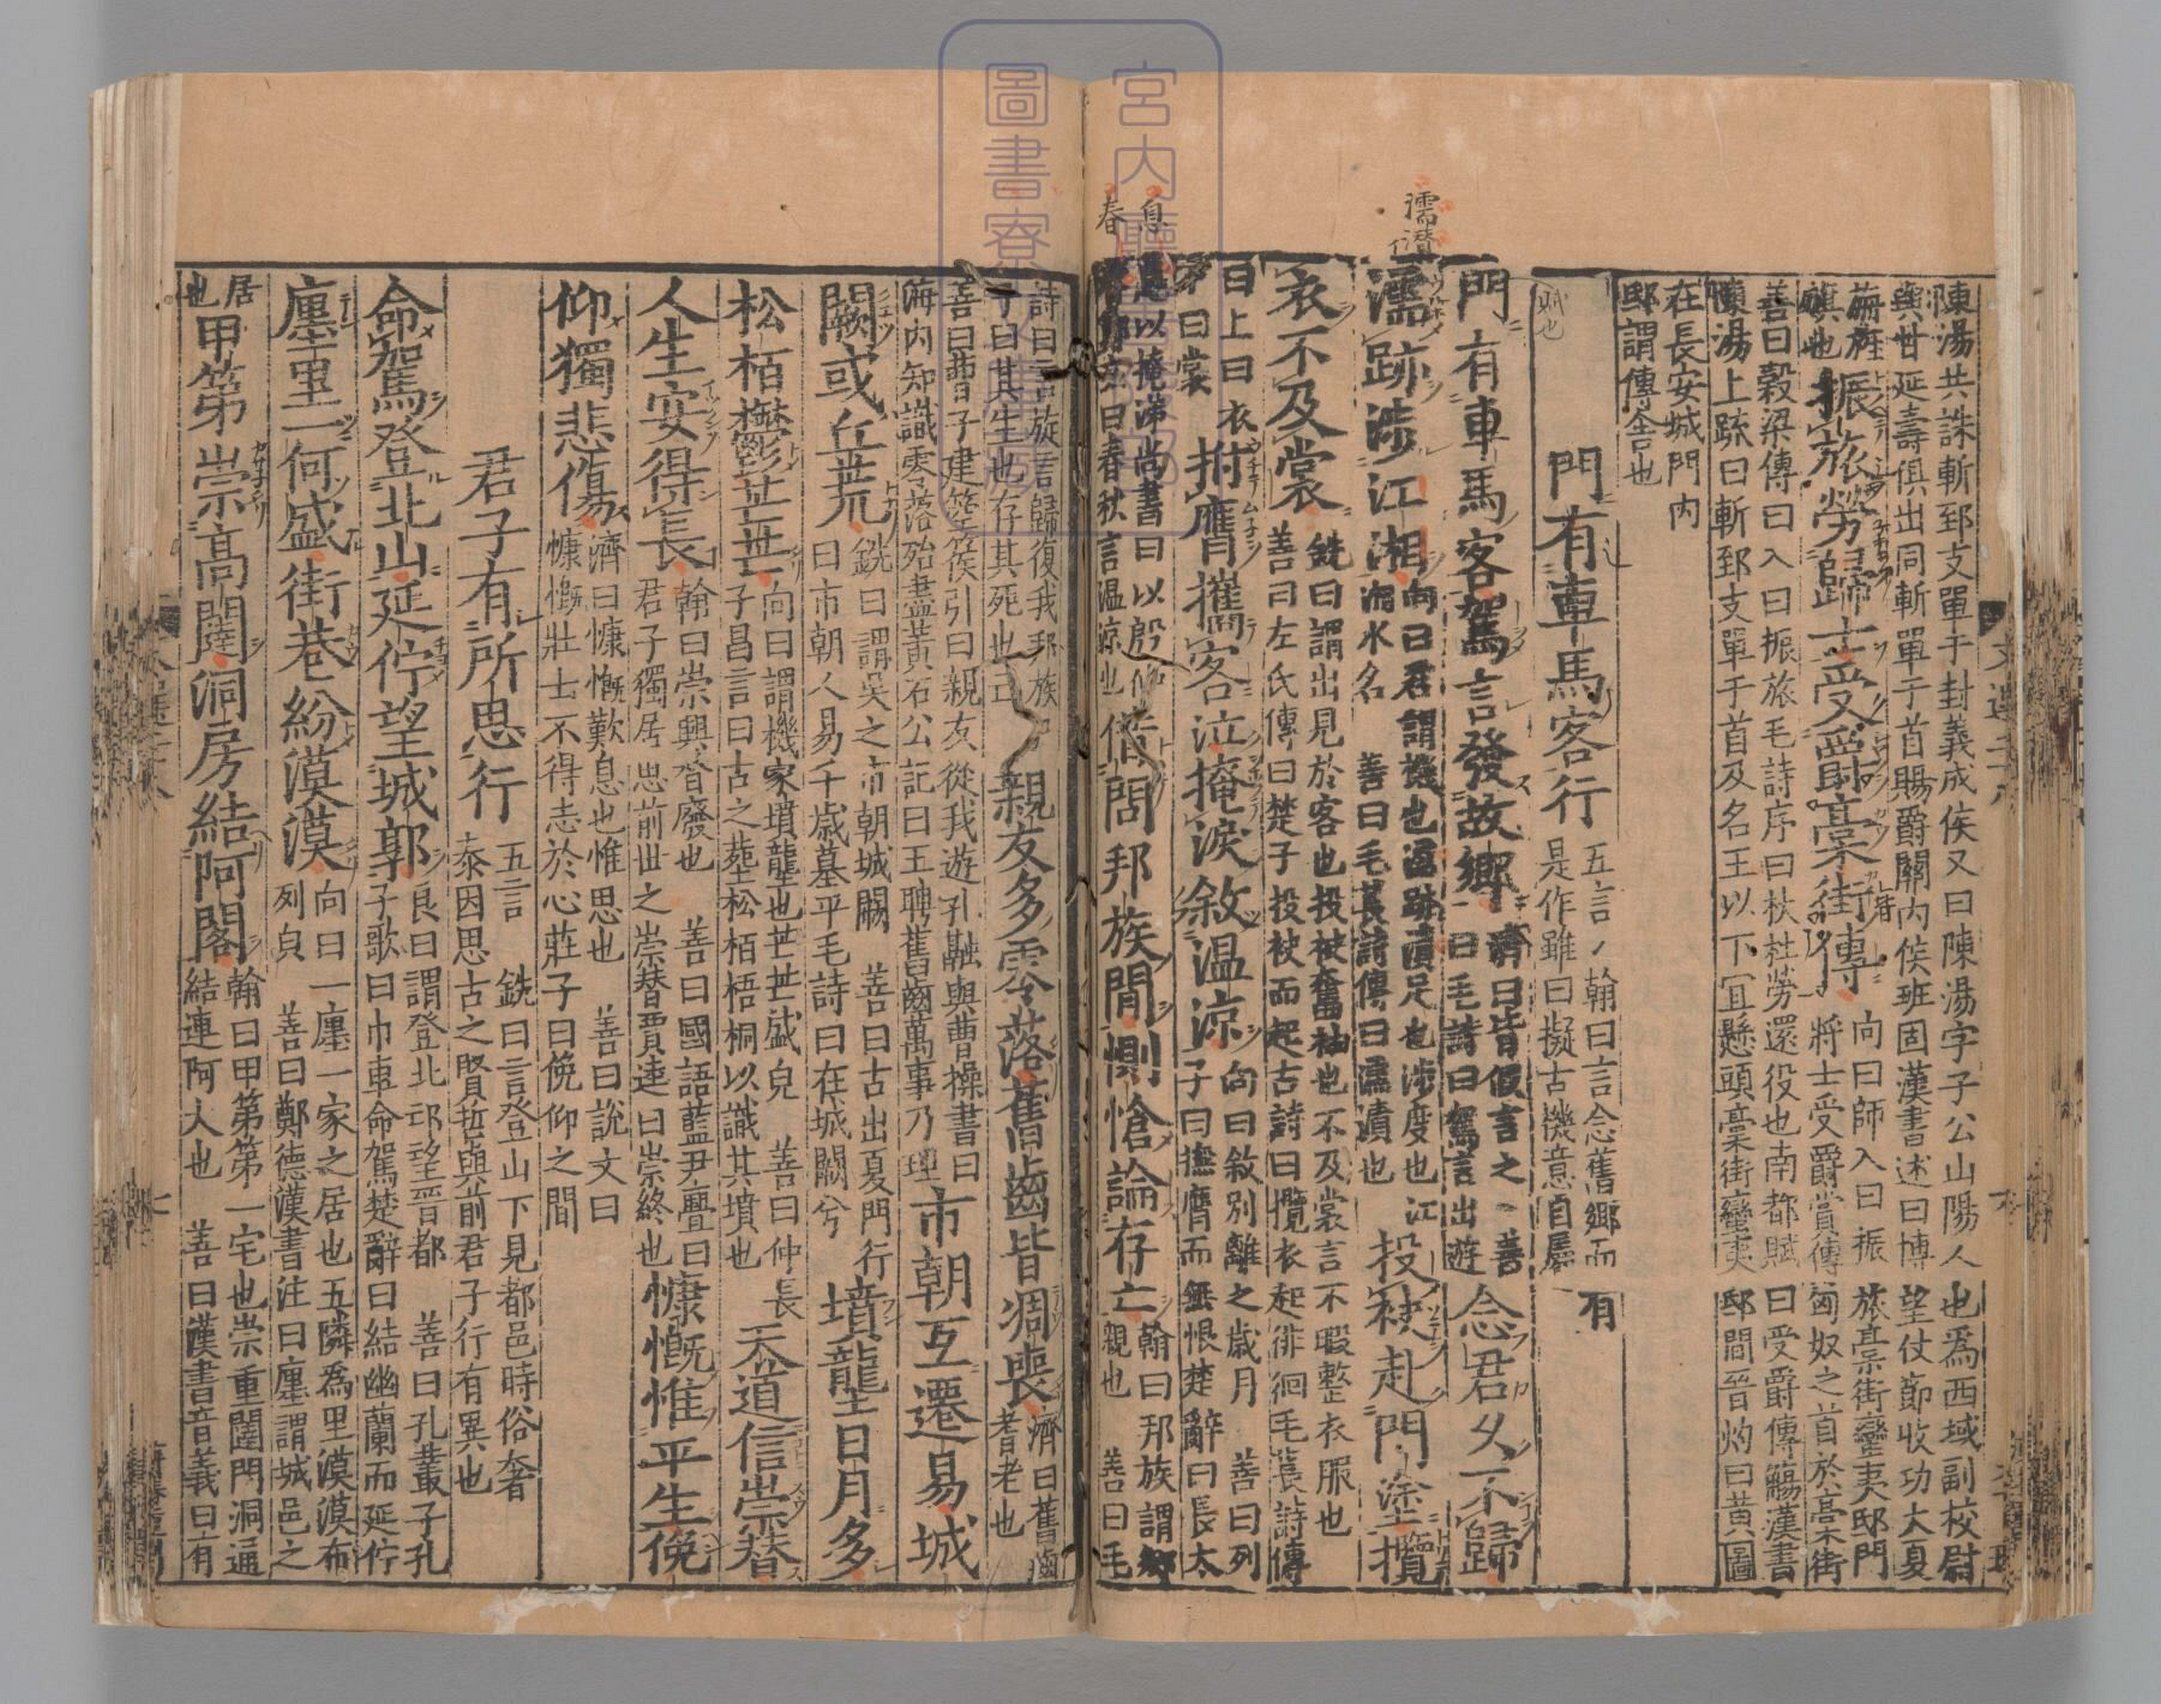 陳湯共誅斬郅支單于封義成侯又曰陳湯字子公山陽人也爲西域副校尉
與甘延壽俱出同斬單于首賜爵關內侯班固漢書述曰博望仗節收功大夏
振旅勞歸士受爵藁街傳
向曰師入曰振旅藁街蠻夷邸門
將士受爵賞傳匈奴之首於藁街
善曰穀梁傳曰入曰振旅毛詩序曰杕杜勞還役也南都賦曰受爵傳觴漢書
陳湯上疏曰斬郅支單于首及名王以下宜懸頭藁街蠻夷邸間晉灼曰黃圖
在長安城門內
邸謂傳舍也
門有車馬客行
五言
翰曰言念舊鄉而有
是作雖曰擬古機意自屬
門有車馬客駕言發故鄉
濟曰皆假言之
善曰毛詩曰駕言出遊
念君久不歸
濡跡涉江湘
向曰君謂機也濡跡漬足也涉度也江
湘水名
善曰毛萇詩傳曰濡漬也
投袂赴門塗攬
衣不及裳
銑曰謂出見於客也投袂奮袖也不及裳言不暇整衣服也
善曰左氏傳曰楚子投袂而起古詩曰攬衣起徘徊毛萇詩傳
曰上曰衣
下曰裳
拊膺攜客泣掩淚敘溫涼
向曰敘別離之歲月
善曰列
子曰撫膺而恨楚辭曰長太
息以掩涕尚書曰以殷仲
春鄭玄曰春秋言溫涼也
借問邦族間惻愴論存亡
翰曰邦族謂鄉
親也
善曰毛
詩曰言旋言歸復我邦族
子曰其生也存其死也亡
親友多零落舊齒皆凋喪
濟曰舊齒
耆老也
善曰曹子建箜篌引曰親友從我遊孔融與曹操書曰
海內知識零落殆盡黃石公記曰王聘舊齒萬事乃理
市朝互遷易城
闕或丘荒
銑曰謂吳之市朝城闕
善曰古出夏門行
曰市朝人易千歲墓平毛詩曰在城闕兮
墳壟日月多
松栢鬱芒芒
向曰謂機家墳壟也芒芒盛皃
善曰仲長
子昌言曰古之葬松栢梧桐以識其墳也
天道信崇替
人生安得長
翰曰崇興替廢也
善曰國語藍尹亹曰
君子獨居思前世之崇替賈逵曰崇終也
慷慨惟平生俛
仰獨悲傷
濟曰慷慨歎息也惟思也
善曰說文曰
慷慨壯士不得志於心莊子曰俛仰之間
君子有所思行
五言
銑曰言登山下見都邑時俗奢
泰因思古之賢哲與前君子行有異也
命駕登北山延佇望城郭
良曰謂登北邙望晉都
善曰孔叢子孔
子歌曰巾車命駕楚辭曰結幽蘭而延佇
廛里一何盛街巷紛漠漠
向曰一廛一家之居也五隣爲里漠漠布
列皃
善曰鄭德漢書注曰廛謂城邑之
居
也
甲第崇高闥洞房結阿閣
翰曰甲第第一宅也崇重闥門洞通
結連阿大也
善曰漢書音義曰有
息
春
濡
漬
宮內廳
圖書寮